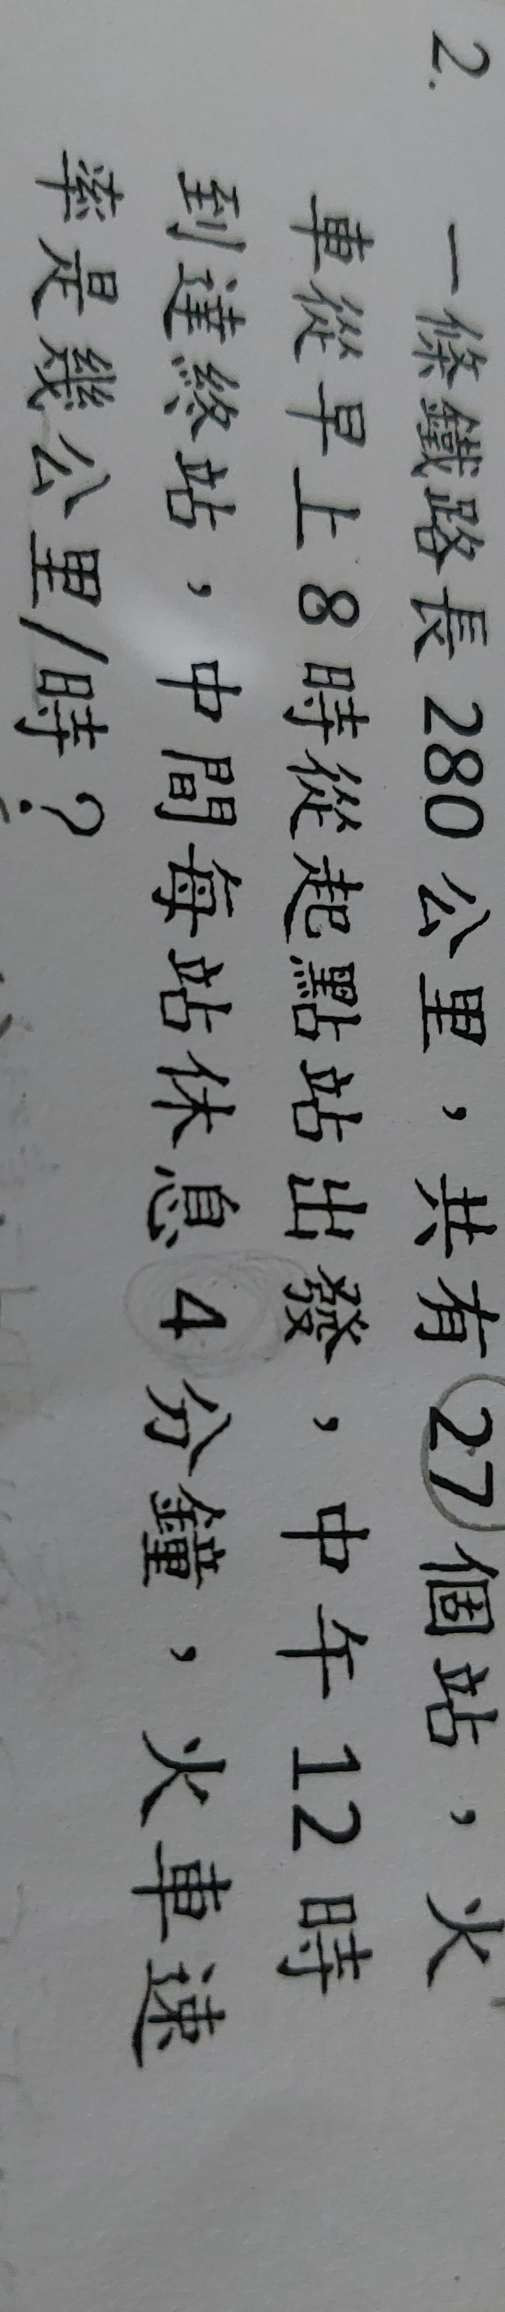 2. 一條鐵路長 280 公里，共有 27 個站，火
車從早上 8 時從起點站出發，中午 12 時
到達終站，中間每站休息 4 分鐘，火車速
率是幾公里/時？